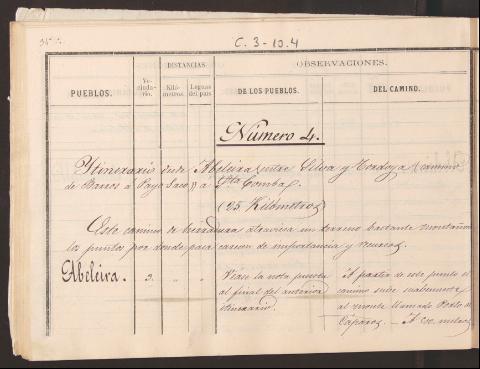 C. 3-10.4
PUEBLOS.
Vecindario.
DISTANCIAS.
Kilómetros.
Leguas del país.
OBSERVACIONES.
DE LOS PUEBLOS.
DEL CAMINO.
Número 4.
Itinerario desde Abeleira (entre Silva y Mordoya (camino
de Barros a Payo Saco)) a Sta Comba.
(25 Kilómetros)
Este camino de herradura atraviesa un terreno bastante montañoso
los puntos por donde pasa carecen de importancia y recursos.
Abeleira. 3. " " Véase la nota puesta
al final del anterior
itinerario.
A partir de este punto el
camino sube suavemente
al monte llamado
Cáparos. — A 200 metros